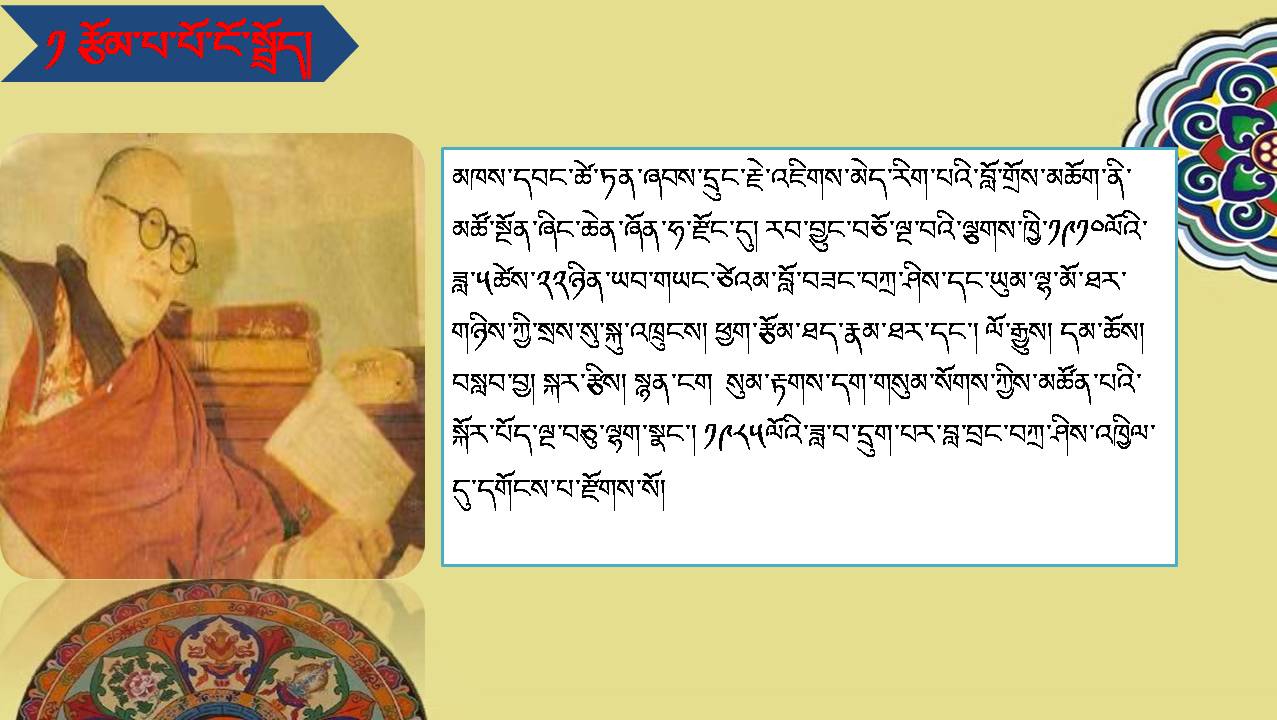 ༡ རྩོམ་པ་པོ་ངོ་སྤྲོད།
མཁས་དབང་ཚེ་ཏན་ཞབས་དྲུང་རྗེ་འཇིགས་མེད་རིག་པའི་བློ་གྲོས་མཆོག་ནི་
མཚོ་སྔོན་ཞིང་ཆེན་ཞོན་ཧ་རྫོང་དུ། རབ་བྱུང་བཅོ་ལྔ་བའི་ལྕགས་ཁྱི་༡༩༡༠ལོའི་
ཟླ་༥ཚེས་༢༢ཉིན་ཡབ་གཡང་ཙེའམ་བློ་བཟང་བཀྲ་ཤིས་དང་ཡུམ་ལྷ་མོ་ཐར་
གཉིས་ཀྱི་སྲས་སུ་སྐུ་འཁྲུངས། ཕྱག་རྩོམ་ཐད་རྣམ་ཐར་དང་། ལོ་རྒྱུས། དམ་ཆོས།
བསླབ་བྱ། སྐར་རྩིས། སྙན་ངག སུམ་རྟགས་དག་གསུམ་སོགས་ཀྱིས་མཚོན་པའི་
སྐོར་པོད་ལྔ་བཅུ་ལྷག་སྣང་། ༡༩༨༥ལོའི་ཟླ་བ་དྲུག་པར་བླ་བྲང་བཀྲ་ཤིས་འཁྱིལ་
དུ་དགོངས་པ་རྫོགས་སོ།